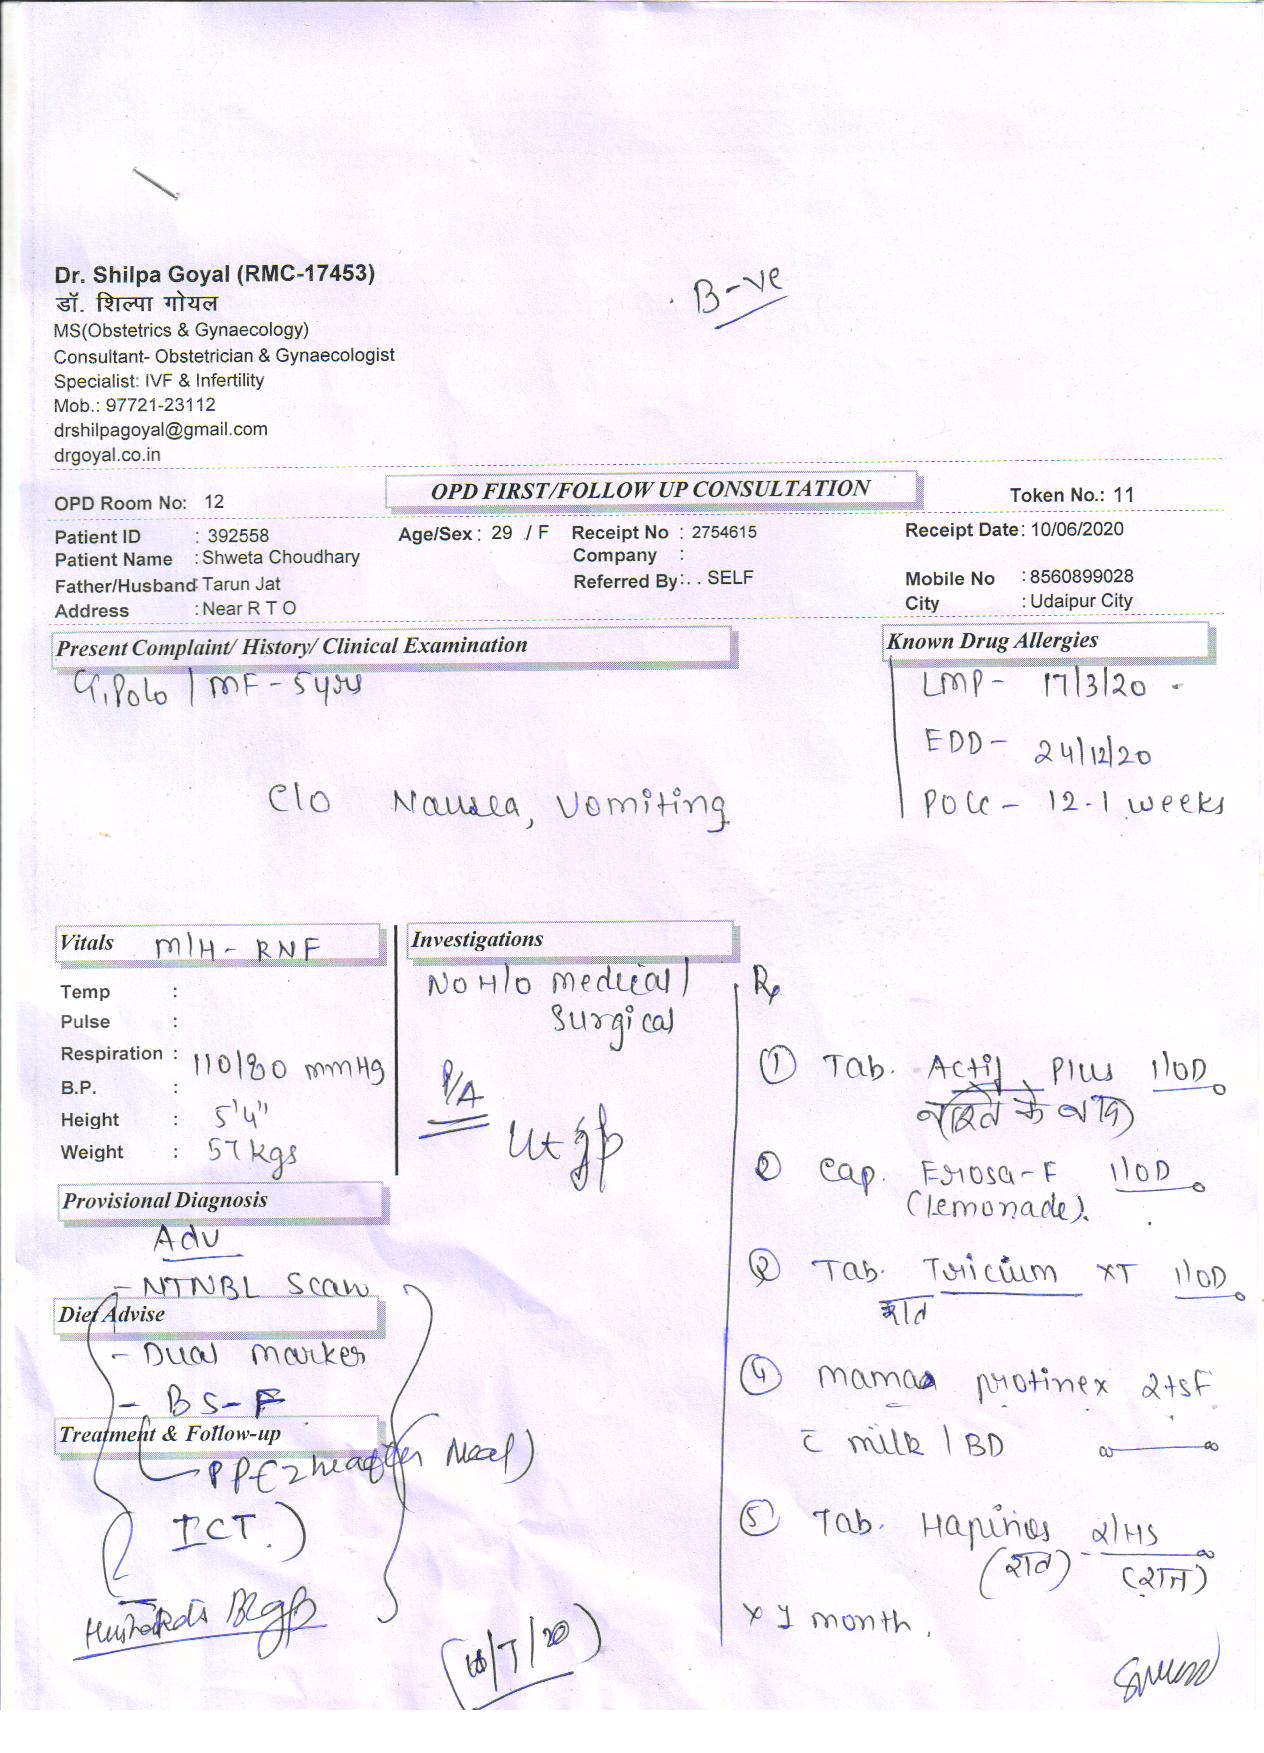 Dr. Shilpa Goyal (RMC-17453)
डॉ. शिल्पा गोयल
MS(Obstetrics & Gynaecology)
Consultant- Obstetrician & Gynaecologist
Specialist: IVF & Infertility
Mob.: 97721-23112
drshilpagoyal@gmail.com
drgoyal.co.in
B-ve
OPD Room No: 12
OPD FIRST/FOLLOW UP CONSULTATION
Token No.: 11
Patient ID : 392558
Age/Sex : 29 / F
Receipt No : 2754615
Receipt Date: 10/06/2020
Patient Name : Shweta Choudhary
Company :
Father/Husband: Tarun Jat
Referred By: . . SELF
Mobile No : 8560899028
Address : Near R T O
City : Udaipur City
Present Complaint/ History/ Clinical Examination
G1P0L0 | MF - 5yrs
C/O Nausea, Vomiting
Known Drug Allergies
LMP - 17/3/20
EDD - 24/12/20
POG - 12.1 weeks
Vitals M/H - RNF
Temp :
Pulse :
Respiration :
110/80 mmHg
B.P. :
Height : 5'4"
Weight : 57 kgs
Investigations
NO H/O medical/
Surgical
P/A
Ut
Provisional Diagnosis
Adv
- NTNBL Scan
Diet Advise
- Dual marker
- BS-F
Treatment & Follow-up
PP(2hr after Meal)
ICT
Rx
① Tab. Plus 1/OD
के बाद
② Cap. 1/OD
(lemonade).
Tab. XT 1/OD
④ mama protinex 2tsf
c̄ milk / BD
⑤ Tab. 2/HS
(रात)
x 1 month.